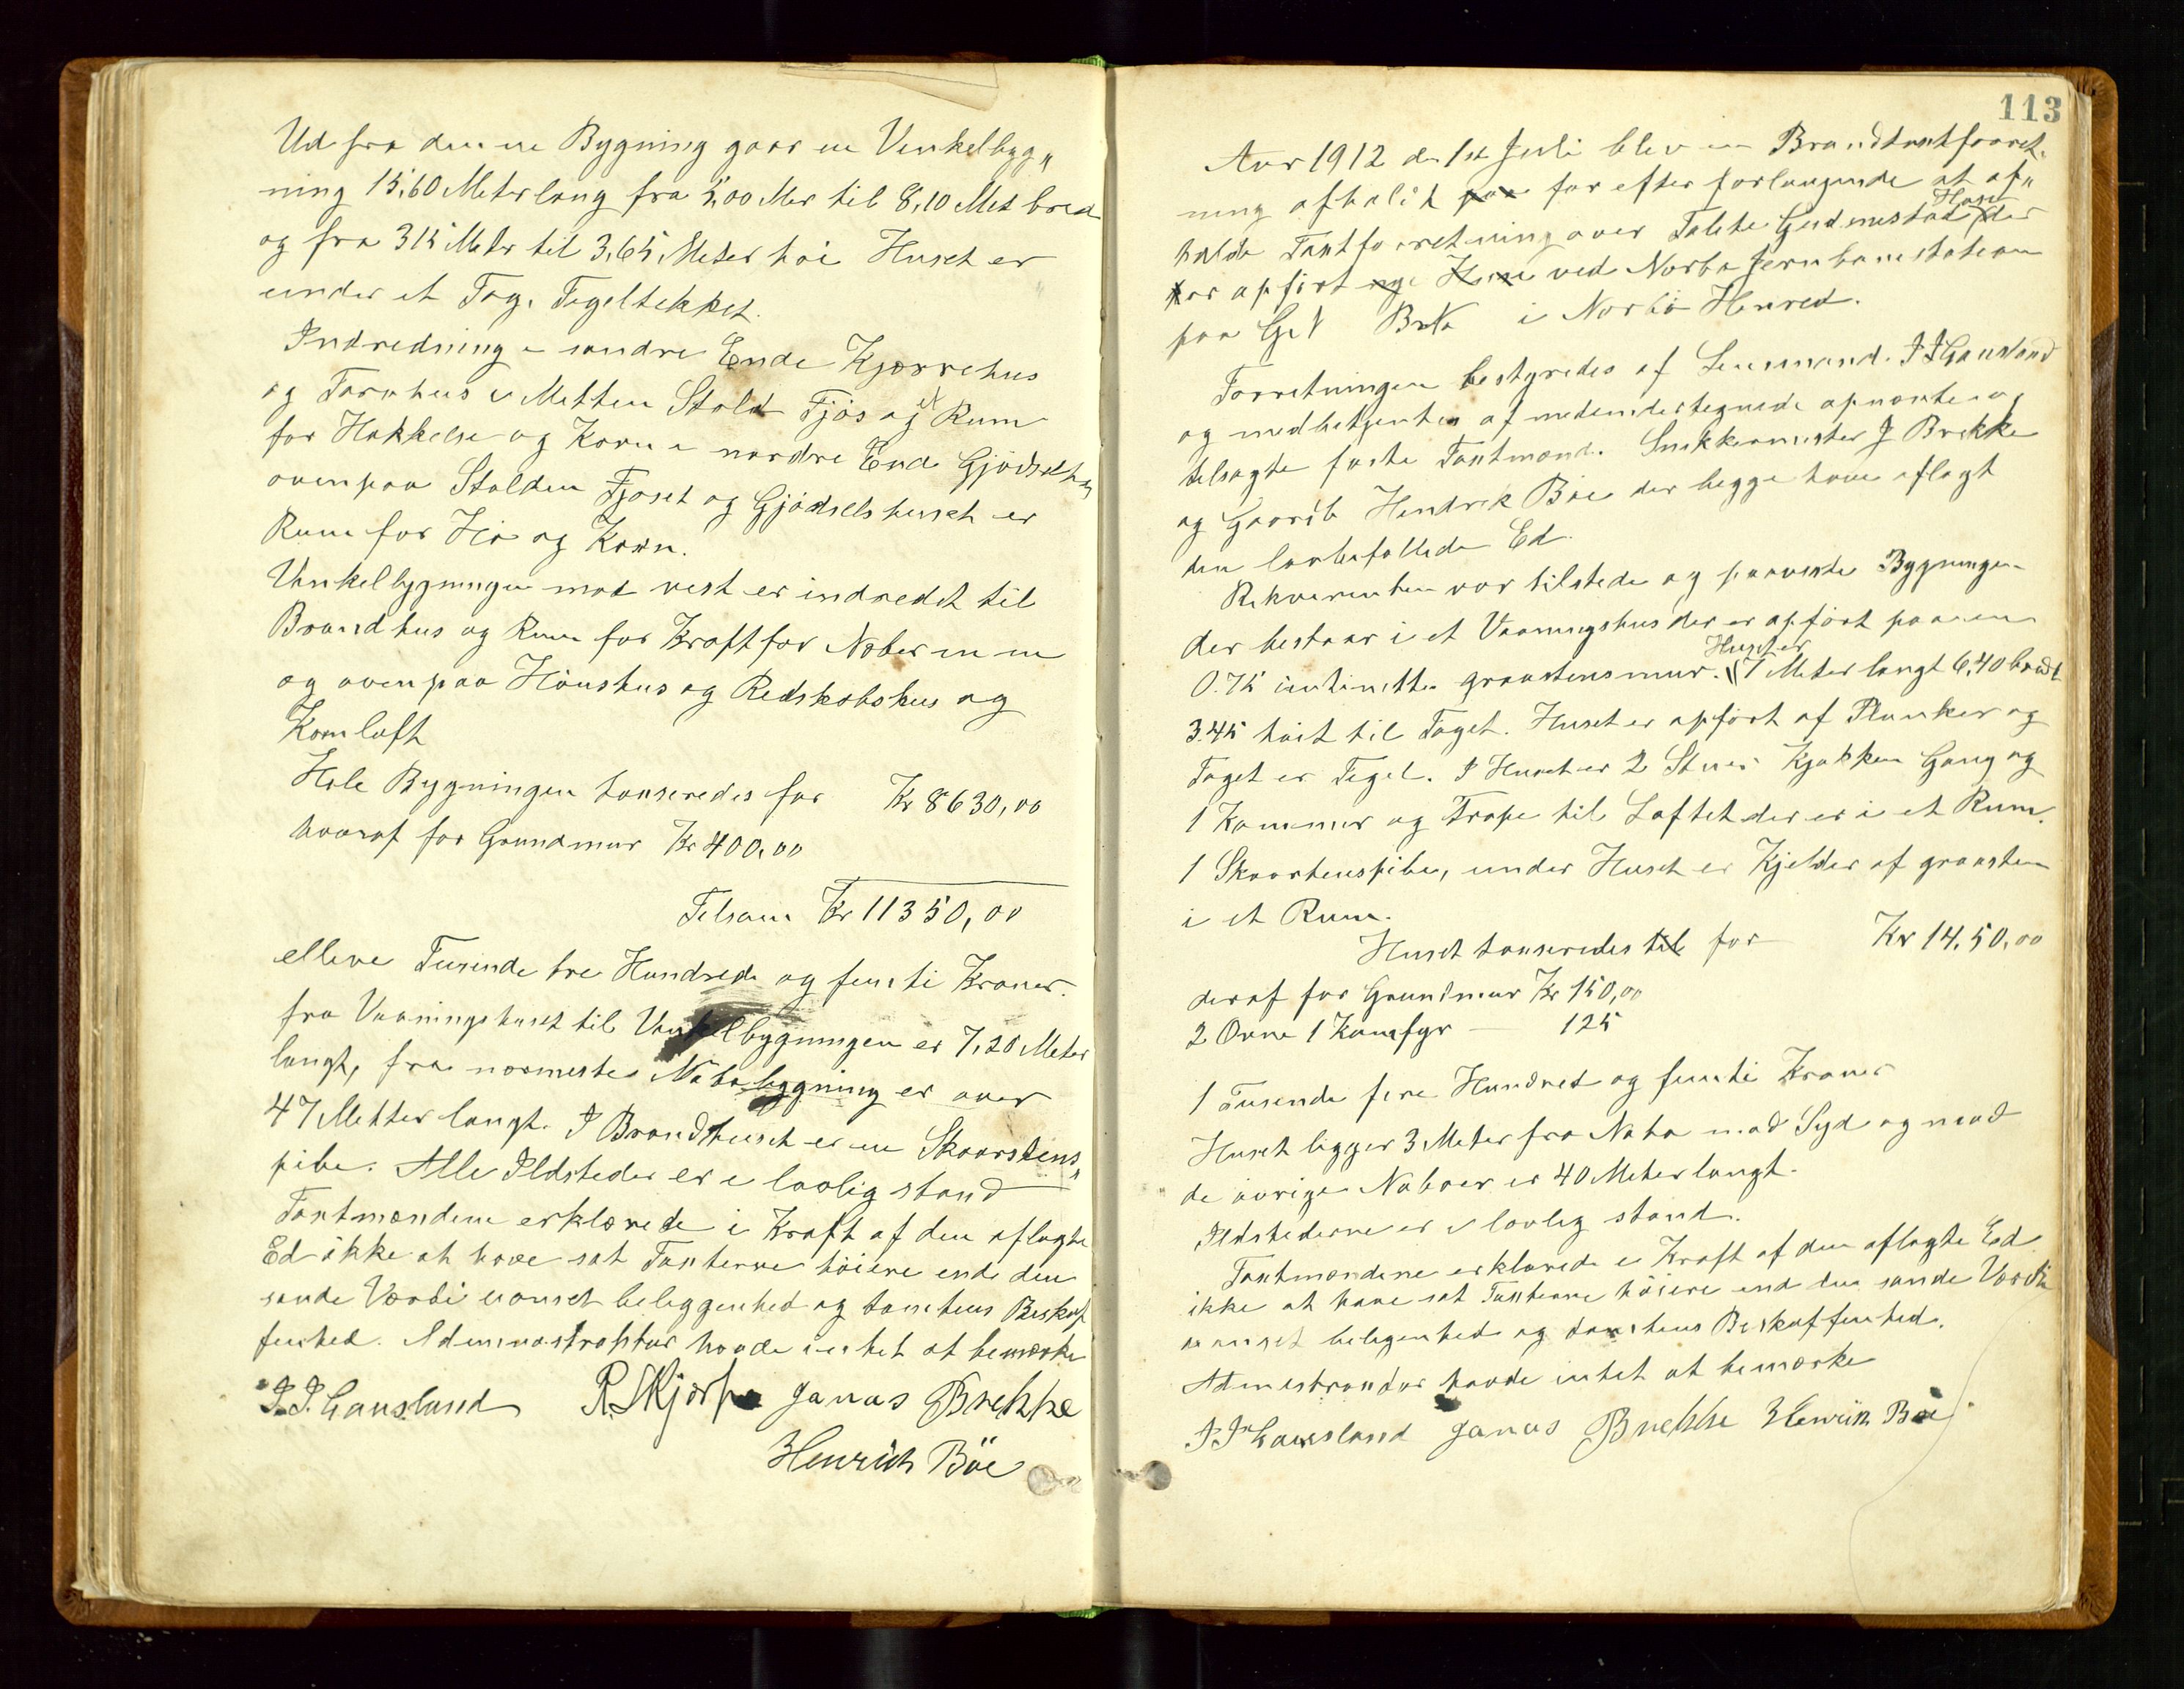 Ud fra denne Bygning gaar en Vinkelbyg„
ning 15,60 Meter lang fra 5,00 Mer til 8,10 Met bred
og fra 315 Meter til 3,65 Meter høi Huset er
under et Tag. Tegeltekket.
Indredning i søndre Ende Kjærrehus
og Tarvhus i Mitten Stald Fjøs og et Rum
for Hakkelse og Korn i nordre Ende Gjødselhus
ovenpaa Stalden Fjøset og Gjødselshuset er
Rum for Hø og Korn.
Vinkelbygningen mod vest er indredet til
Brandhus og Rum for Kraftfor Næber m m
og ovenpaa Hönshus og Redskabshus og
Kornloft
Hele Bygningen taxseredes for Kr 8630,00
hvoraf for Grundmur Kr 400,00
Tilsam Kr 11350,00
elleve Tusinde tre Hundrede og femti Kroner.
fra Vaaningshuset til Vinkelbygningen er 7,20 Meter
langt, fra nærmeste Nabobygning er over
47 Metter langt. I Brandhuset er en Skaarstens„
pibe. Alle Ildsteder er i lovlig stand
Taxtmændene erklærede i Kraft af den aflagte
Ed ikke at have sat Taxterne höiere ende den
sande Værdi uanset beliggenhed og tomtens Beskaf
fenhed. Adminnastraktor havde intet at bemærke
I. I. Gausland R. Skjørpe Janas Brekke
Henrich Böe
113
Aar 1912 den 1ste Juli blev en Brandtaxtforret„
ning afholdt paa for efter forlangende at af„
holde Taxtforretning over Tolete Gudmestad Hus der
er opfört nye Huse ved Nærbø Jernbanestation
paa GrN BrN i Nærbö Herred.
Forretningen bestyredes af Lensmand. I I Gausland
og medbetjentes af medundertegnede opnævnte og
tilsagte faste Taxtmænd. Snekkermester J Brekke
og Gaardb Hendrik Böe der begge have aflagt
den lovbefallede Ed.
Rekvirenten var tilstede og paaviste Bygningen
der bestaar i et Vaaningshus der er opfört paa en
0.75 centimetter graastensmur. Huset er 7 Meter langt 6,40 bredt
3.45 höit til Taget. Huset er opfört af Planker og
Taget er Tegel. I Huset er 2 Stuer Kjøkken Gang og
1 Kammer og Trape til Loftet der er i et Rum.
1 Skaarstenspibe, under Huset er Kjelder af graasten
i et Rum.
Huset taxseredes til for Kr 14,50,00
deraf for Grundmur Kr 150,00
2 Ovne 1 Komfyr — 125
1 Tusende fire Hundret og femti Kroner
Huset ligger 3 Meter fra Nabo mod Syd og mod
de övrige Naboer er 40 Meter langt.
Ildstederne er i lovlig stand.
Taxtmændene erklærede i Kraft af den aflagte Ed
ikke at have sat Taxterne höiere end den sande Værdi
uanset beligenhed og tomtens Beskaffenhed.
Admistrandor havde intet at bemærke
I I Gausland Janas Brekke Henrich Böe